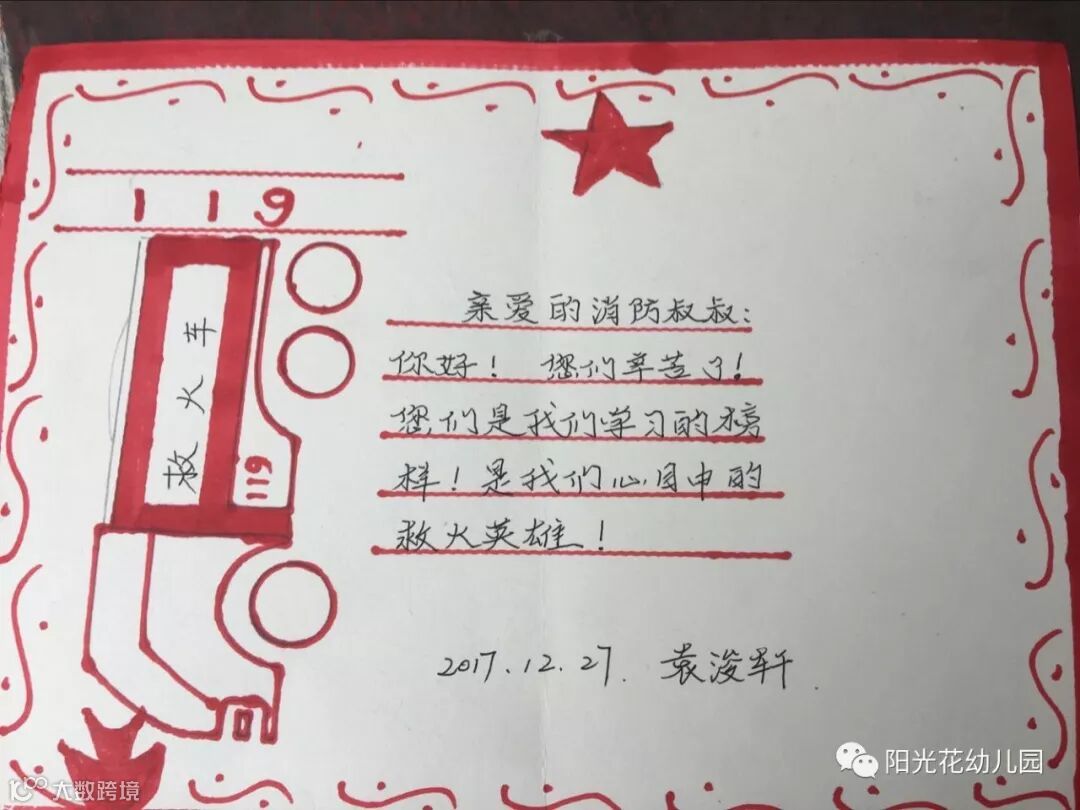 119
救火车
119
亲爱的消防叔叔：
你好！ 您们辛苦了！
您们是我们学习的榜
样！是我们心目中的
救火英雄！
2017.12.27. 袁浚轩.
阳光花幼儿园
大数跨境